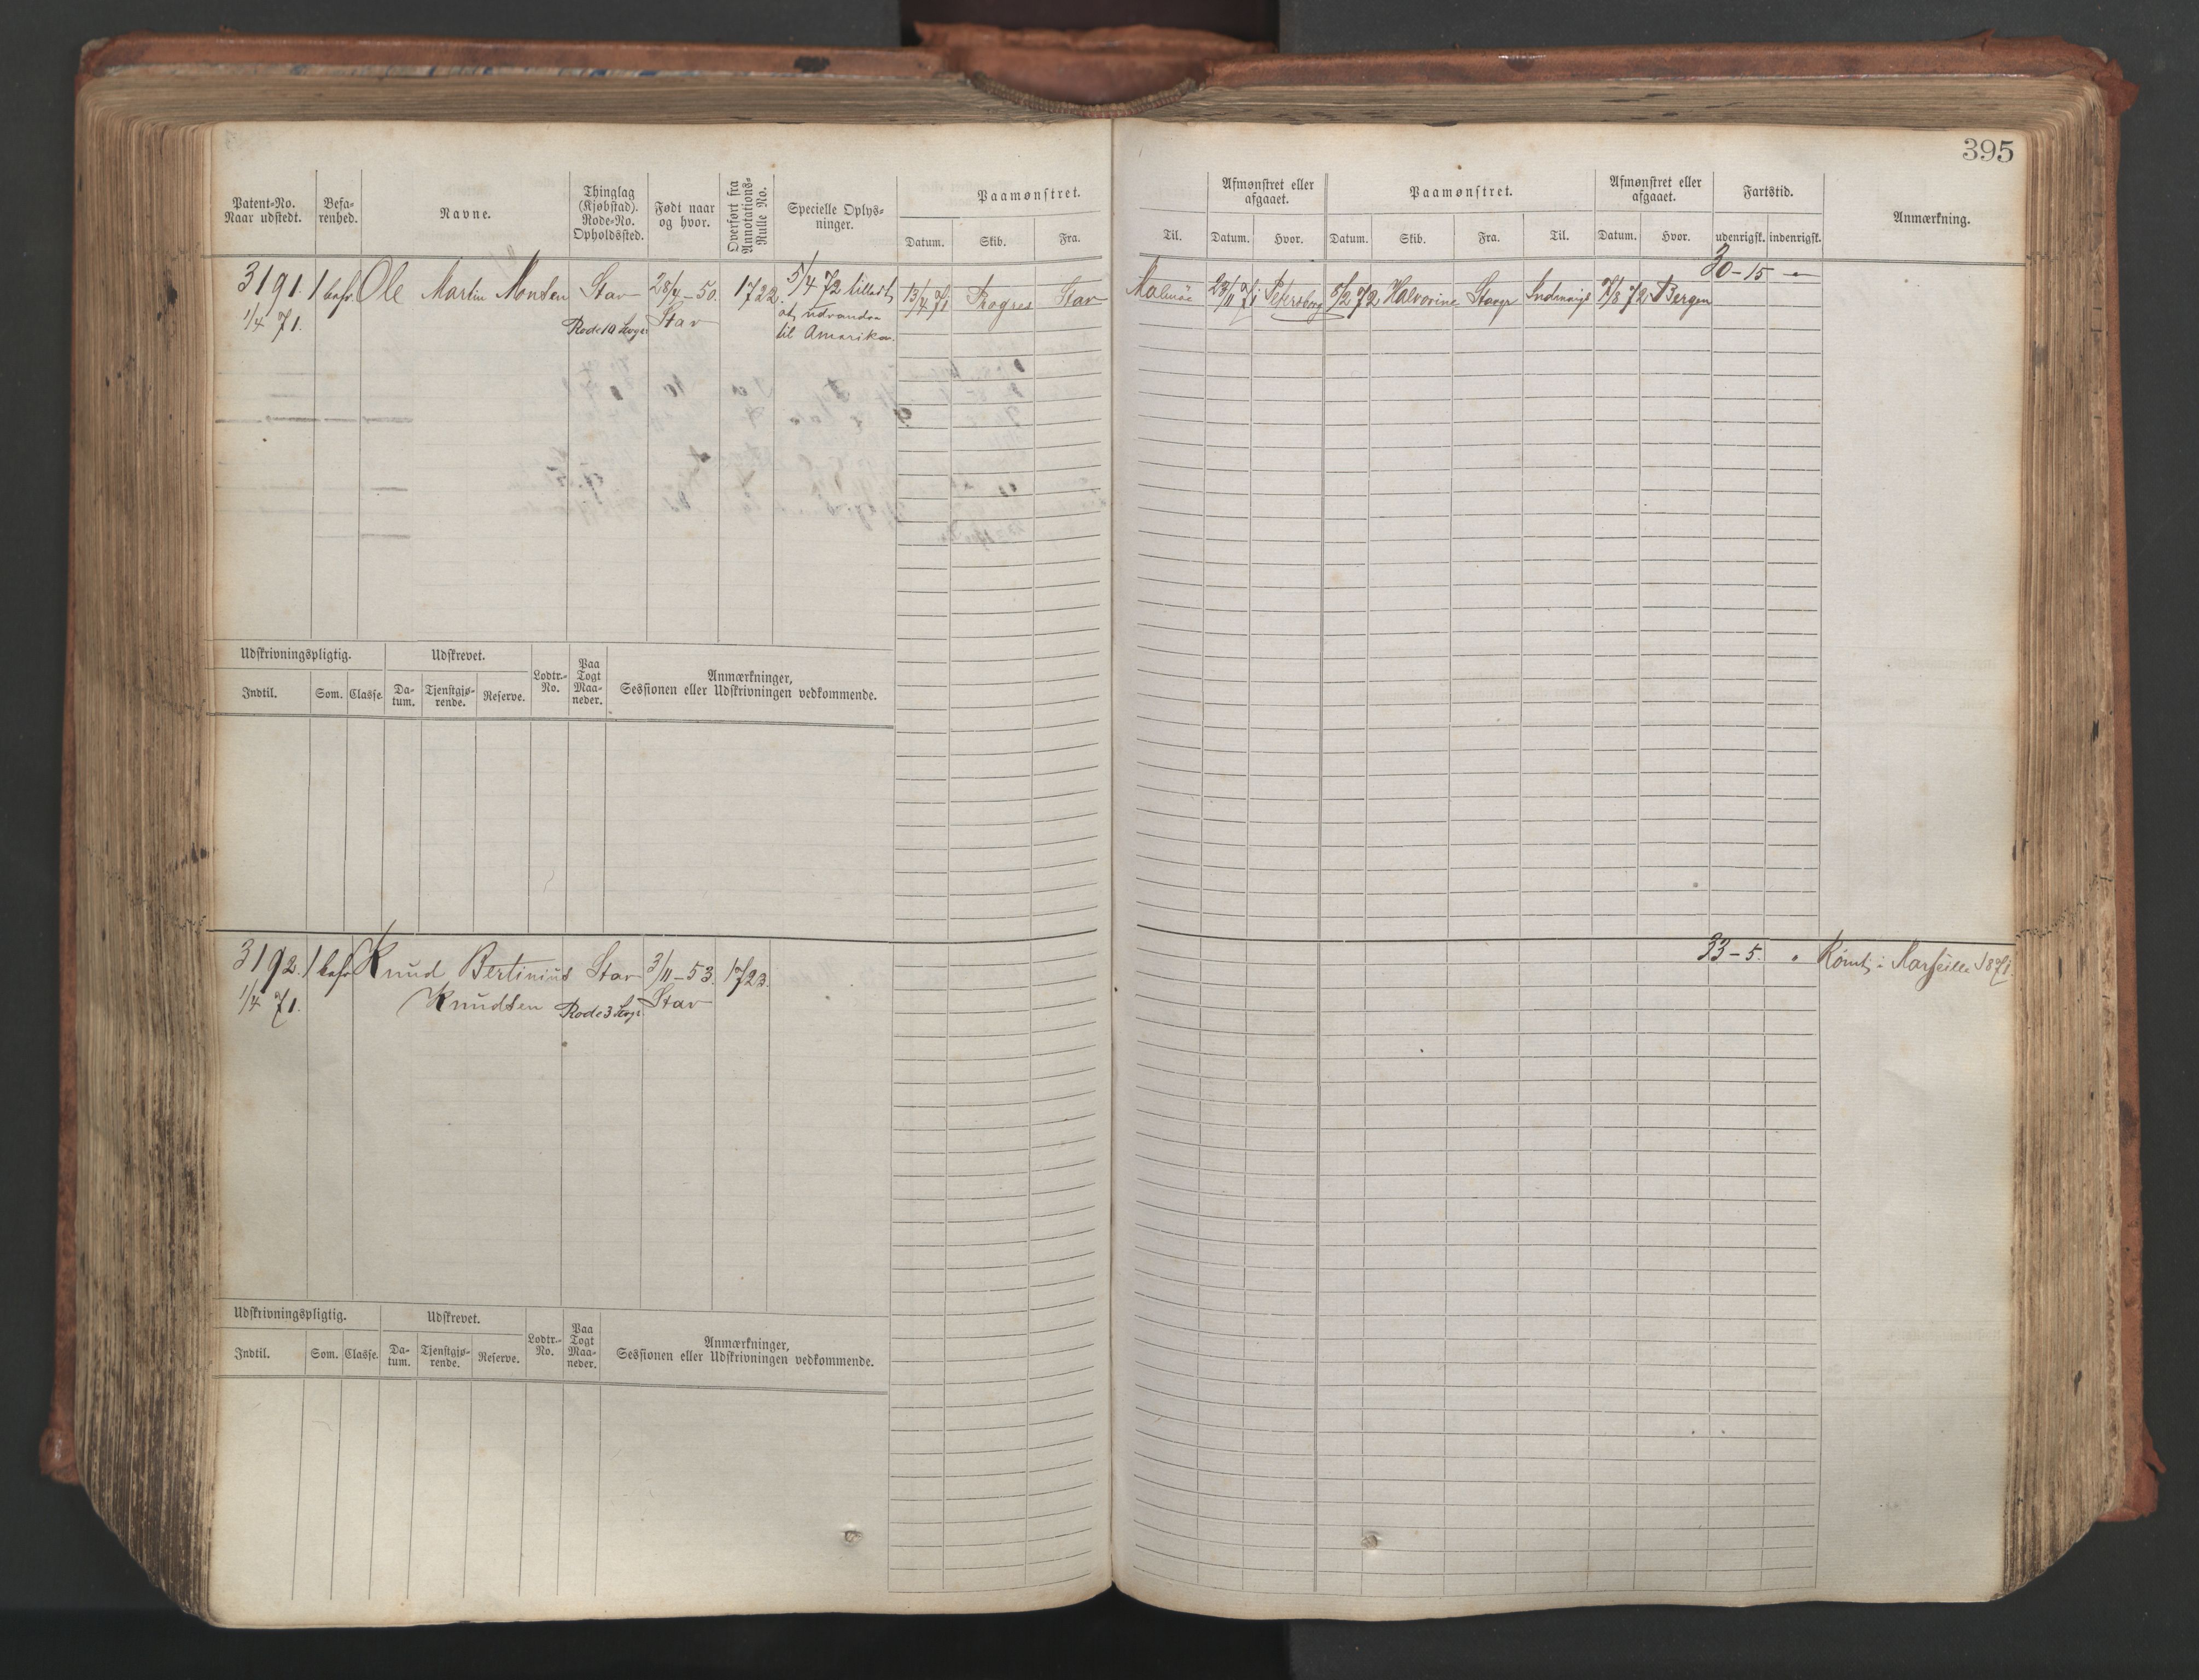 395
Patent-No. Naar udstedt.
Befa-renhed.
Navne.
Thinglag (Kjøbstad). Rode-No. Opholdssted.
Født naar og hvor.
Overført fra Annotations-Rulle No.
Specielle Oplys-ninger.
Paamønstret.
Datum. Skib. Fra.
Til.
Afmønstret eller afgaaet.
Datum. Hvor.
Paamønstret.
Datum. Skib. Fra. Til.
Afmønstret eller afgaaet.
Datum. Hvor.
Fartstid.
udenrigsk. indenrigsk.
Anmærkning.
30-15 -
3191. 1 bef. Ole Martin Monsen Stav 28/4-50. 1722. 5/4 72 tilladt 13/4 71 Stav Malmöe 71 Petersborg 5/2 72 Halvorine Stavgr Indenrigs 7/8 72 Bergen
1/4 71. Rode 10 Stav at udvandre
til Amerika.
Udskrivningspligtig. Udskrevet. Lodtr.-No. Paa Togt Maa-neder. Anmærkninger,
Sessionen eller Udskrivningen vedkommende.
Indtil. Som. Classe. Da-tum. Tjenstgjø-rende. Reserve.
33-5. " Rømt i Marseille 1871.
3192. 1 bef. Knud Bertinius Stav 3/11-53. 1723.
1/4 71. Knudsen Rode 3 Stav
Udskrivningspligtig. Udskrevet. Lodtr.-No. Paa Togt Maa-neder. Anmærkninger,
Sessionen eller Udskrivningen vedkommende.
Indtil. Som. Classe. Da-tum. Tjenstgjø-rende. Reserve.